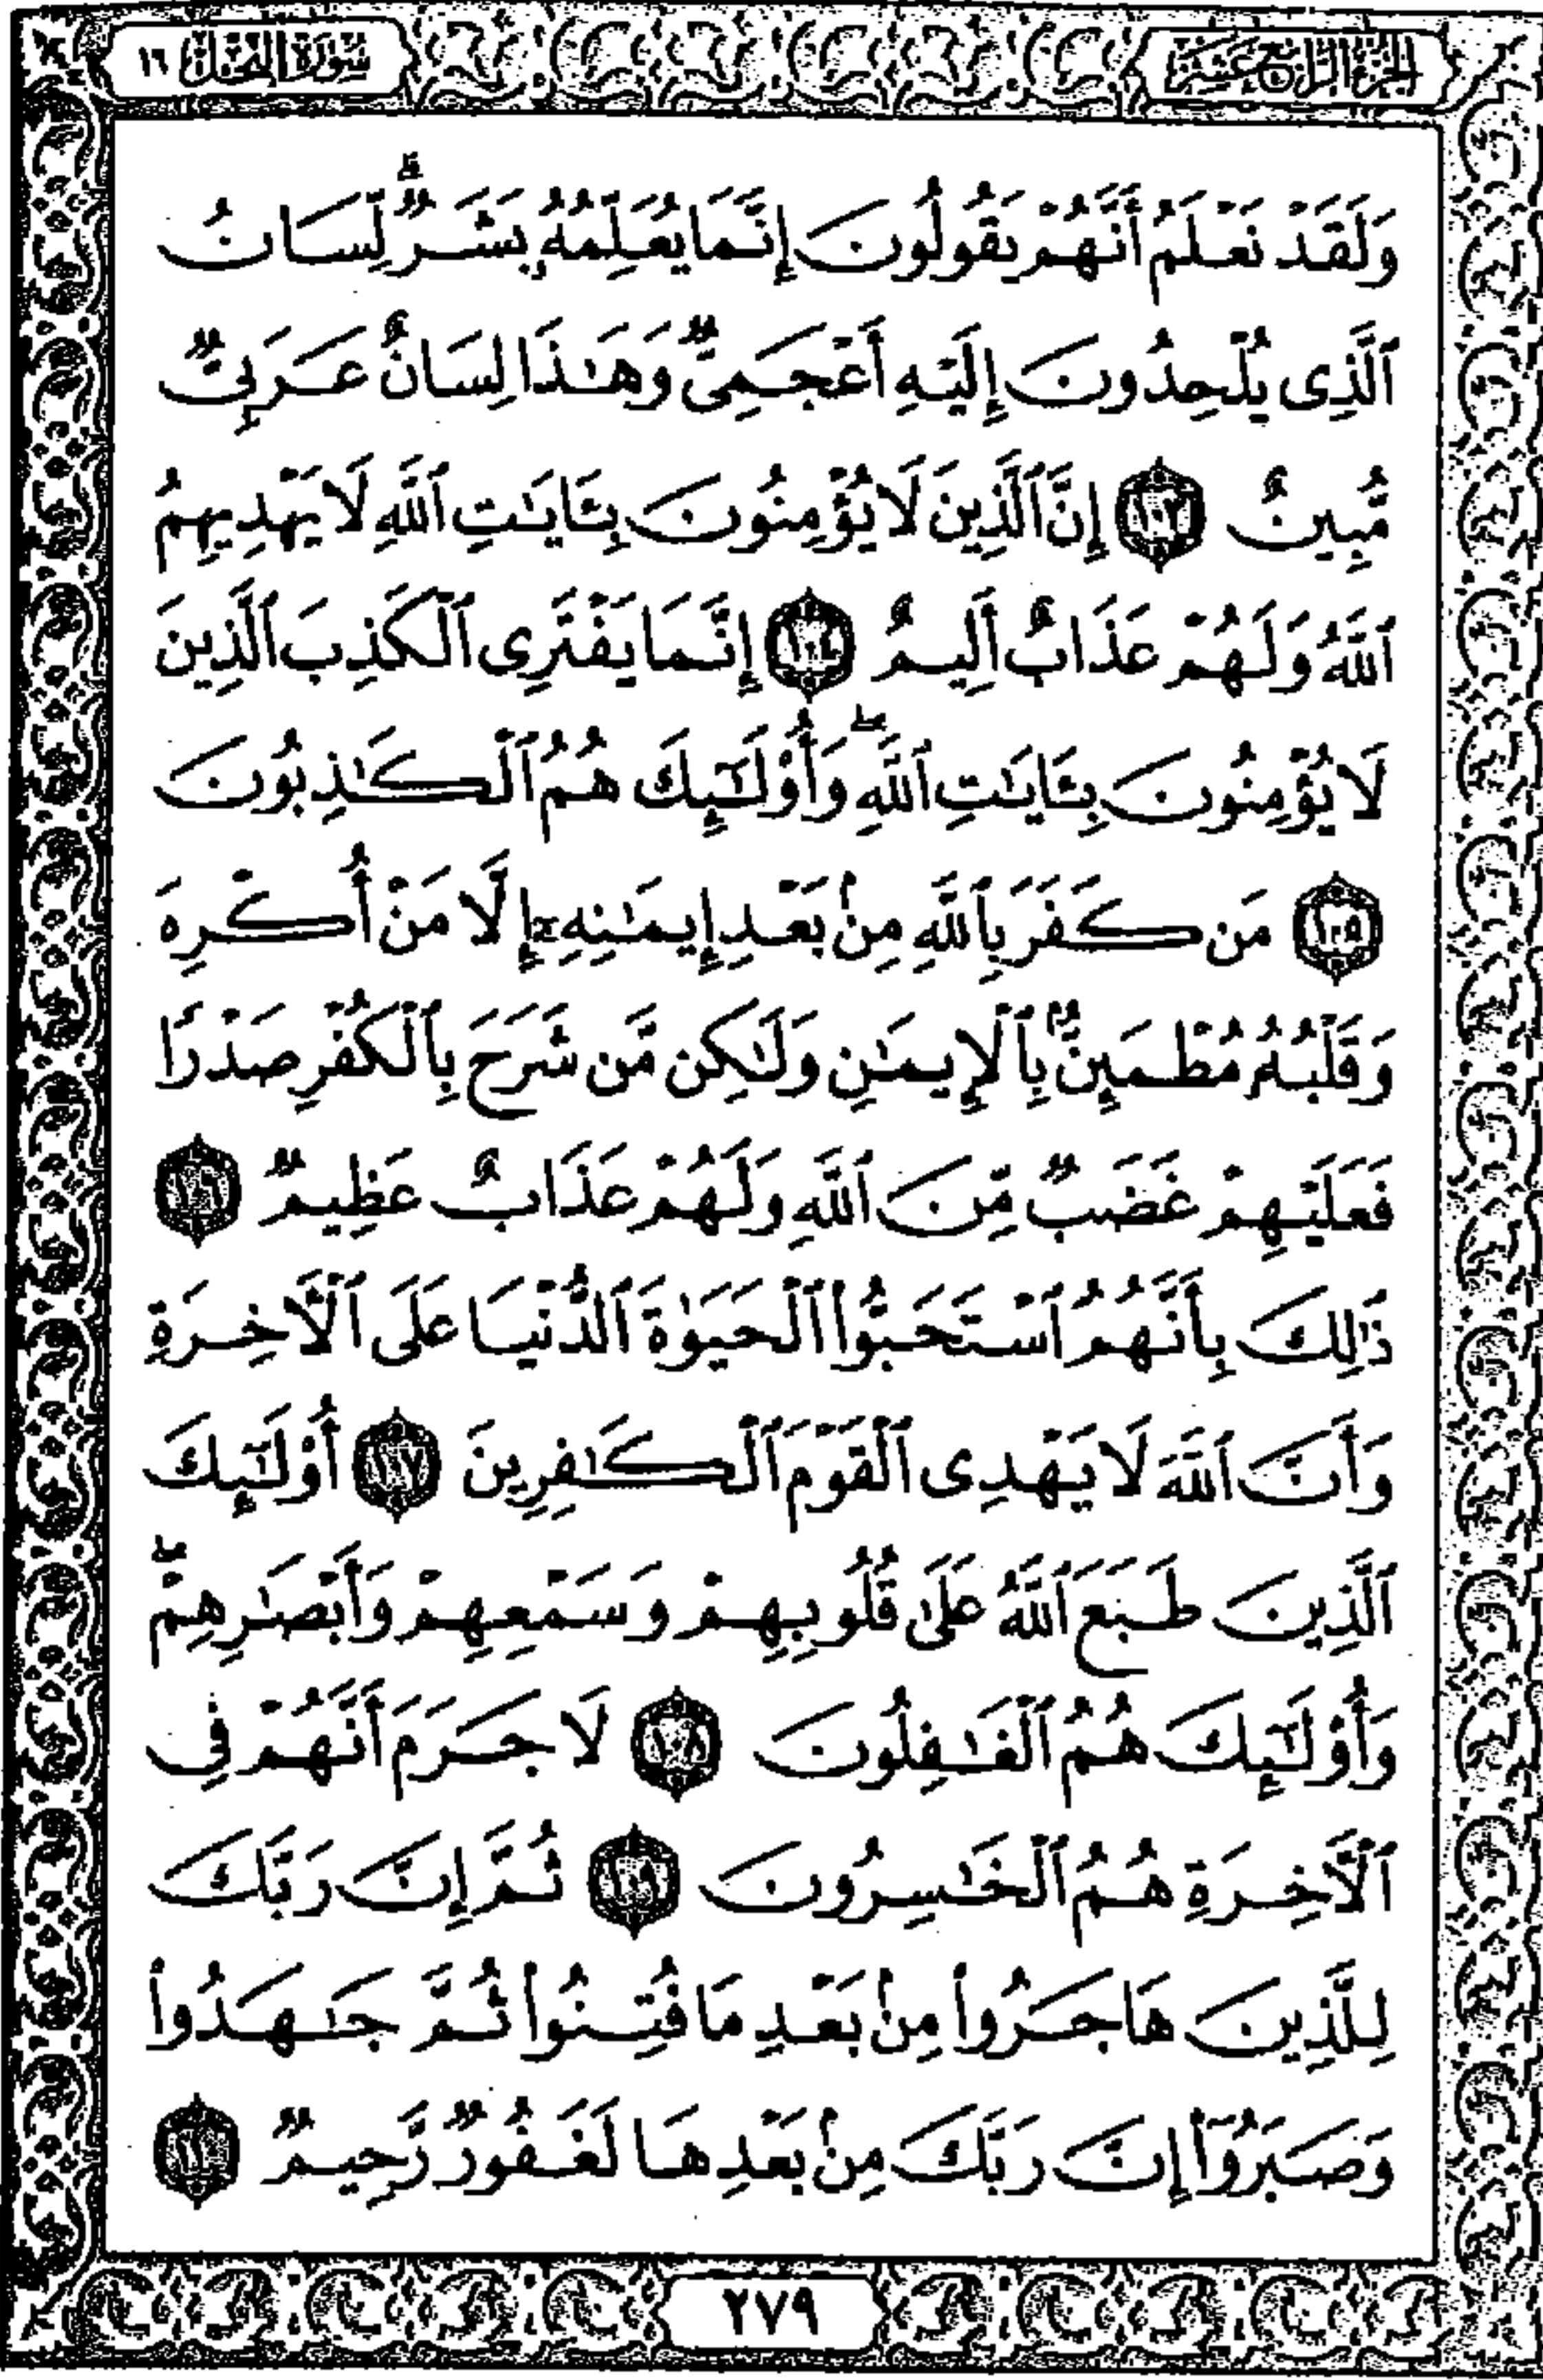 الجزء الرابع عشر
سورة النحل ١٦
وَلَقَدْ نَعْلَمُ أَنَّهُمْ يَقُولُونَ إِنَّمَا يُعَلِّمُهُۥ بَشَرٌۗ لِّسَانُ
ٱلَّذِى يُلْحِدُونَ إِلَيْهِ أَعْجَمِىٌّ وَهَٰذَا لِسَانٌ عَرَبِىٌّ
مُّبِينٌ ١٠٣ إِنَّ ٱلَّذِينَ لَا يُؤْمِنُونَ بِـَٔايَٰتِ ٱللَّهِ لَا يَهْدِيهِمُ
ٱللَّهُ وَلَهُمْ عَذَابٌ أَلِيمٌ ١٠٤ إِنَّمَا يَفْتَرِى ٱلْكَذِبَ ٱلَّذِينَ
لَا يُؤْمِنُونَ بِـَٔايَٰتِ ٱللَّهِۖ وَأُو۟لَٰٓئِكَ هُمُ ٱلْكَٰذِبُونَ
١٠٥ مَن كَفَرَ بِٱللَّهِ مِنۢ بَعْدِ إِيمَٰنِهِۦٓ إِلَّا مَنْ أُكْرِهَ
وَقَلْبُهُۥ مُطْمَئِنٌّۢ بِٱلْإِيمَٰنِ وَلَٰكِن مَّن شَرَحَ بِٱلْكُفْرِ صَدْرًا
فَعَلَيْهِمْ غَضَبٌ مِّنَ ٱللَّهِ وَلَهُمْ عَذَابٌ عَظِيمٌ ١٠٦
ذَٰلِكَ بِأَنَّهُمُ ٱسْتَحَبُّوا۟ ٱلْحَيَوٰةَ ٱلدُّنْيَا عَلَى ٱلْـَٔاخِرَةِ
وَأَنَّ ٱللَّهَ لَا يَهْدِى ٱلْقَوْمَ ٱلْكَٰفِرِينَ ١٠٧ أُو۟لَٰٓئِكَ
ٱلَّذِينَ طَبَعَ ٱللَّهُ عَلَىٰ قُلُوبِهِمْ وَسَمْعِهِمْ وَأَبْصَٰرِهِمْۖ
وَأُو۟لَٰٓئِكَ هُمُ ٱلْغَٰفِلُونَ ١٠٨ لَا جَرَمَ أَنَّهُمْ فِى
ٱلْـَٔاخِرَةِ هُمُ ٱلْخَٰسِرُونَ ١٠٩ ثُمَّ إِنَّ رَبَّكَ
لِلَّذِينَ هَاجَرُوا۟ مِنۢ بَعْدِ مَا فُتِنُوا۟ ثُمَّ جَٰهَدُوا۟
وَصَبَرُوٓا۟ إِنَّ رَبَّكَ مِنۢ بَعْدِهَا لَغَفُورٌ رَّحِيمٌ ١١٠
٢٧٩